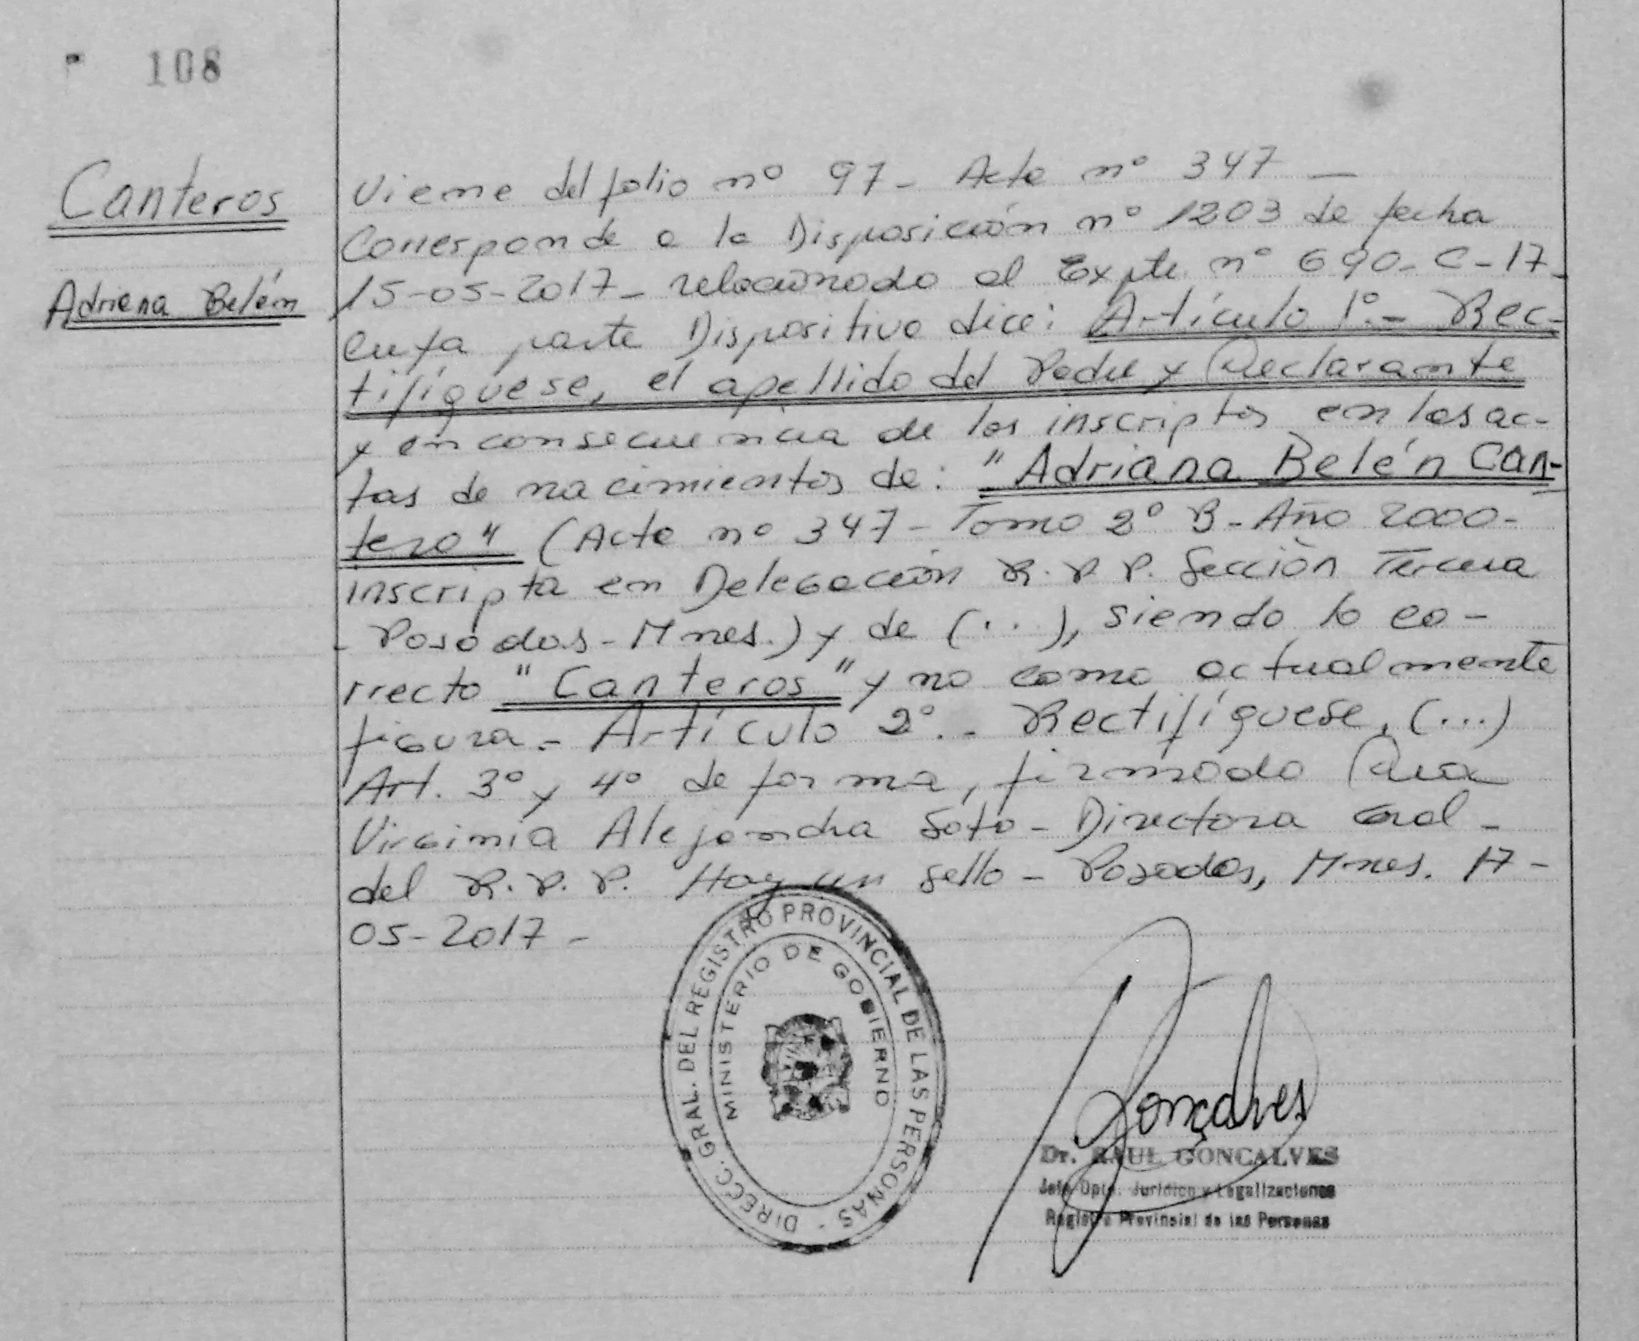 108
Canteros
Adriana Belén
Viene del folio nº 97 - Acta nº 347 —
Corresponde a la Disposición nº 1203 de fecha
15-05-2017 - relacionado al Expte. nº 690-C-17-
cuya parte Dispositiva dice: Artículo 1º.- Rec-
tifíquese, el apellido del Padre y Declarante
y en consecuencia de los inscriptos en las ac-
tas de nacimientos de: "Adriana Belén Can-
tero" (Acta nº 347 - Tomo 2º B - Año 2000 -
inscripta en Delegación R.P.P. Sección Tercera
- Posadas - Mnes.) y de (...), siendo lo co-
rrecto "Canteros" y no como actualmente
figura - Artículo 2º.- Rectifíquese, (...)
Art. 3º y 4º de forma, firmado
Virginia Alejandra Soto - Directora Gral -
del R.P.P. Hay un sello - Posadas, Mnes. 17-
05-2017 -
DIRECC. GRAL. DEL REGISTRO PROVINCIAL DE LAS PERSONAS -
MINISTERIO DE GOBIERNO
Gonçalves
Dr. RAUL GONCALVES
Jefe Dpto. Jurídico y Legalizaciones
Registro Provincial de las Personas